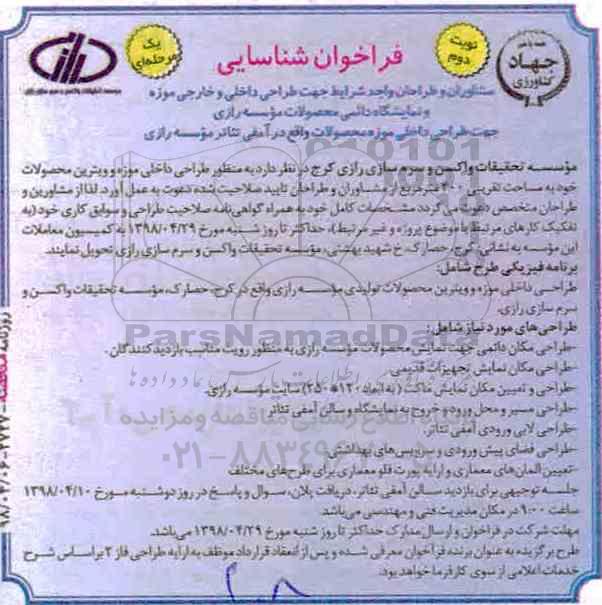 جهاد
کشاورزی
نوبت
دوم
فراخوان شناسایی
یک
مرحله‌ای
مشاوران و طراحان واجد شرایط جهت طراحی داخلی و خارجی موزه
و نمایشگاه دائمی محصولات مؤسسه رازی
جهت طراحی داخلی موزه محصولات واقع در آمفی تئاتر مؤسسه رازی
مؤسسه تحقیقات واکسن و سرم سازی رازی کرج در نظر دارد به منظور طراحی داخلی موزه و ویترین محصولات
خود به مساحت تقریبی ۴۰۰ مترمربع از مشاوران و طراحان تایید صلاحیت شده دعوت به عمل آورد. لذا از مشاورین و
طراحان متخصص دعوت می گردد مشخصات کامل خود به همراه گواهی‌نامه صلاحیت طراحی و سوابق کاری خود (به
تفکیک کارهای مرتبط با موضوع پروژه و غیر مرتبط)، حداکثر تا روز شنبه مورخ ۱۳۹۸/۰۴/۲۹ به کمیسیون معاملات
این مؤسسه به نشانی: کرج، حصارک، خ شهید بهشتی، مؤسسه تحقیقات واکسن و سرم سازی رازی تحویل نمایند.
برنامه فیزیکی طرح شامل:
طراحی داخلی موزه و ویترین محصولات تولیدی مؤسسه رازی واقع در کرج، حصارک، مؤسسه تحقیقات واکسن و
سرم سازی رازی.
طراحی‌های مورد نیاز شامل:
-طراحی مکان دائمی جهت نمایش محصولات مؤسسه رازی به منظور رویت مناسب بازدیدکنندگان.
-طراحی مکان نمایش تجهیزات قدیمی.
-طراحی و تعیین مکان نمایش ماکت (به ابعاد ۱۲۰*۲۵۰) سایت مؤسسه رازی.
-طراحی مسیر و محل ورود و خروج به نمایشگاه و سالن آمفی تئاتر
-طراحی لابی ورودی آمفی تئاتر.
-طراحی فضای پیش ورودی و سرویس‌های بهداشتی.
-تعیین المان‌های معماری و ارایه پورت فلو معماری برای طرح‌های مختلف
جلسه توجیهی برای بازدید سالن آمفی تئاتر، دریافت پلان، سوال و پاسخ در روز دوشنبه مورخ ۱۳۹۸/۰۴/۱۰
ساعت ۹:۰۰ در مکان مدیریت فنی و مهندسی می‌باشد.
مهلت شرکت در فراخوان و ارسال مدارک حداکثر تا روز شنبه مورخ ۱۳۹۸/۰۴/۲۹ می‌باشد.
طرح برگزیده به عنوان برنده فراخوان معرفی شده و پس از انعقاد قرارداد موظف به ارایه طراحی فاز ۲ براساس شرح
خدمات اعلامی از سوی کارفرما خواهد بود.
ParsNamadData
۰۲۱-۸۸۳۴۹۶